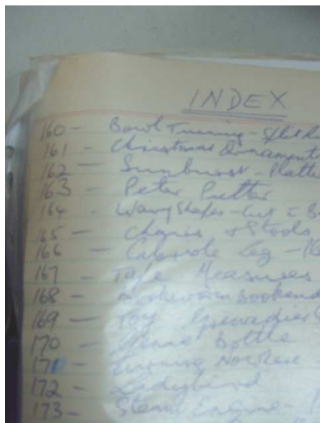 INDEX
160 - Bowl Turning -
161 - Christmas Ornaments
162 - Sunburst - Platter
163 - Peter Putter
164 - Wavy Shapes - Cut
165 - Chairs & Stools
166 - Cabriole Leg -
167 - Tape Measures
168 - Bookworm Bookends
169 - Toy
170 - Bottle
171 - Turning
172 - Ladybird
173 - Steam Engine -